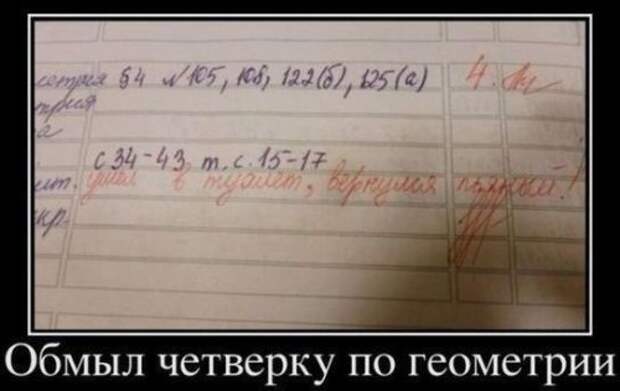 метрия §4 №105, 108, 122(б), 125(а) 4.
с 34-43 т. с. 15-17
ушел в туалет, вернулся пьяный!
Обмыл четверку по геометрии